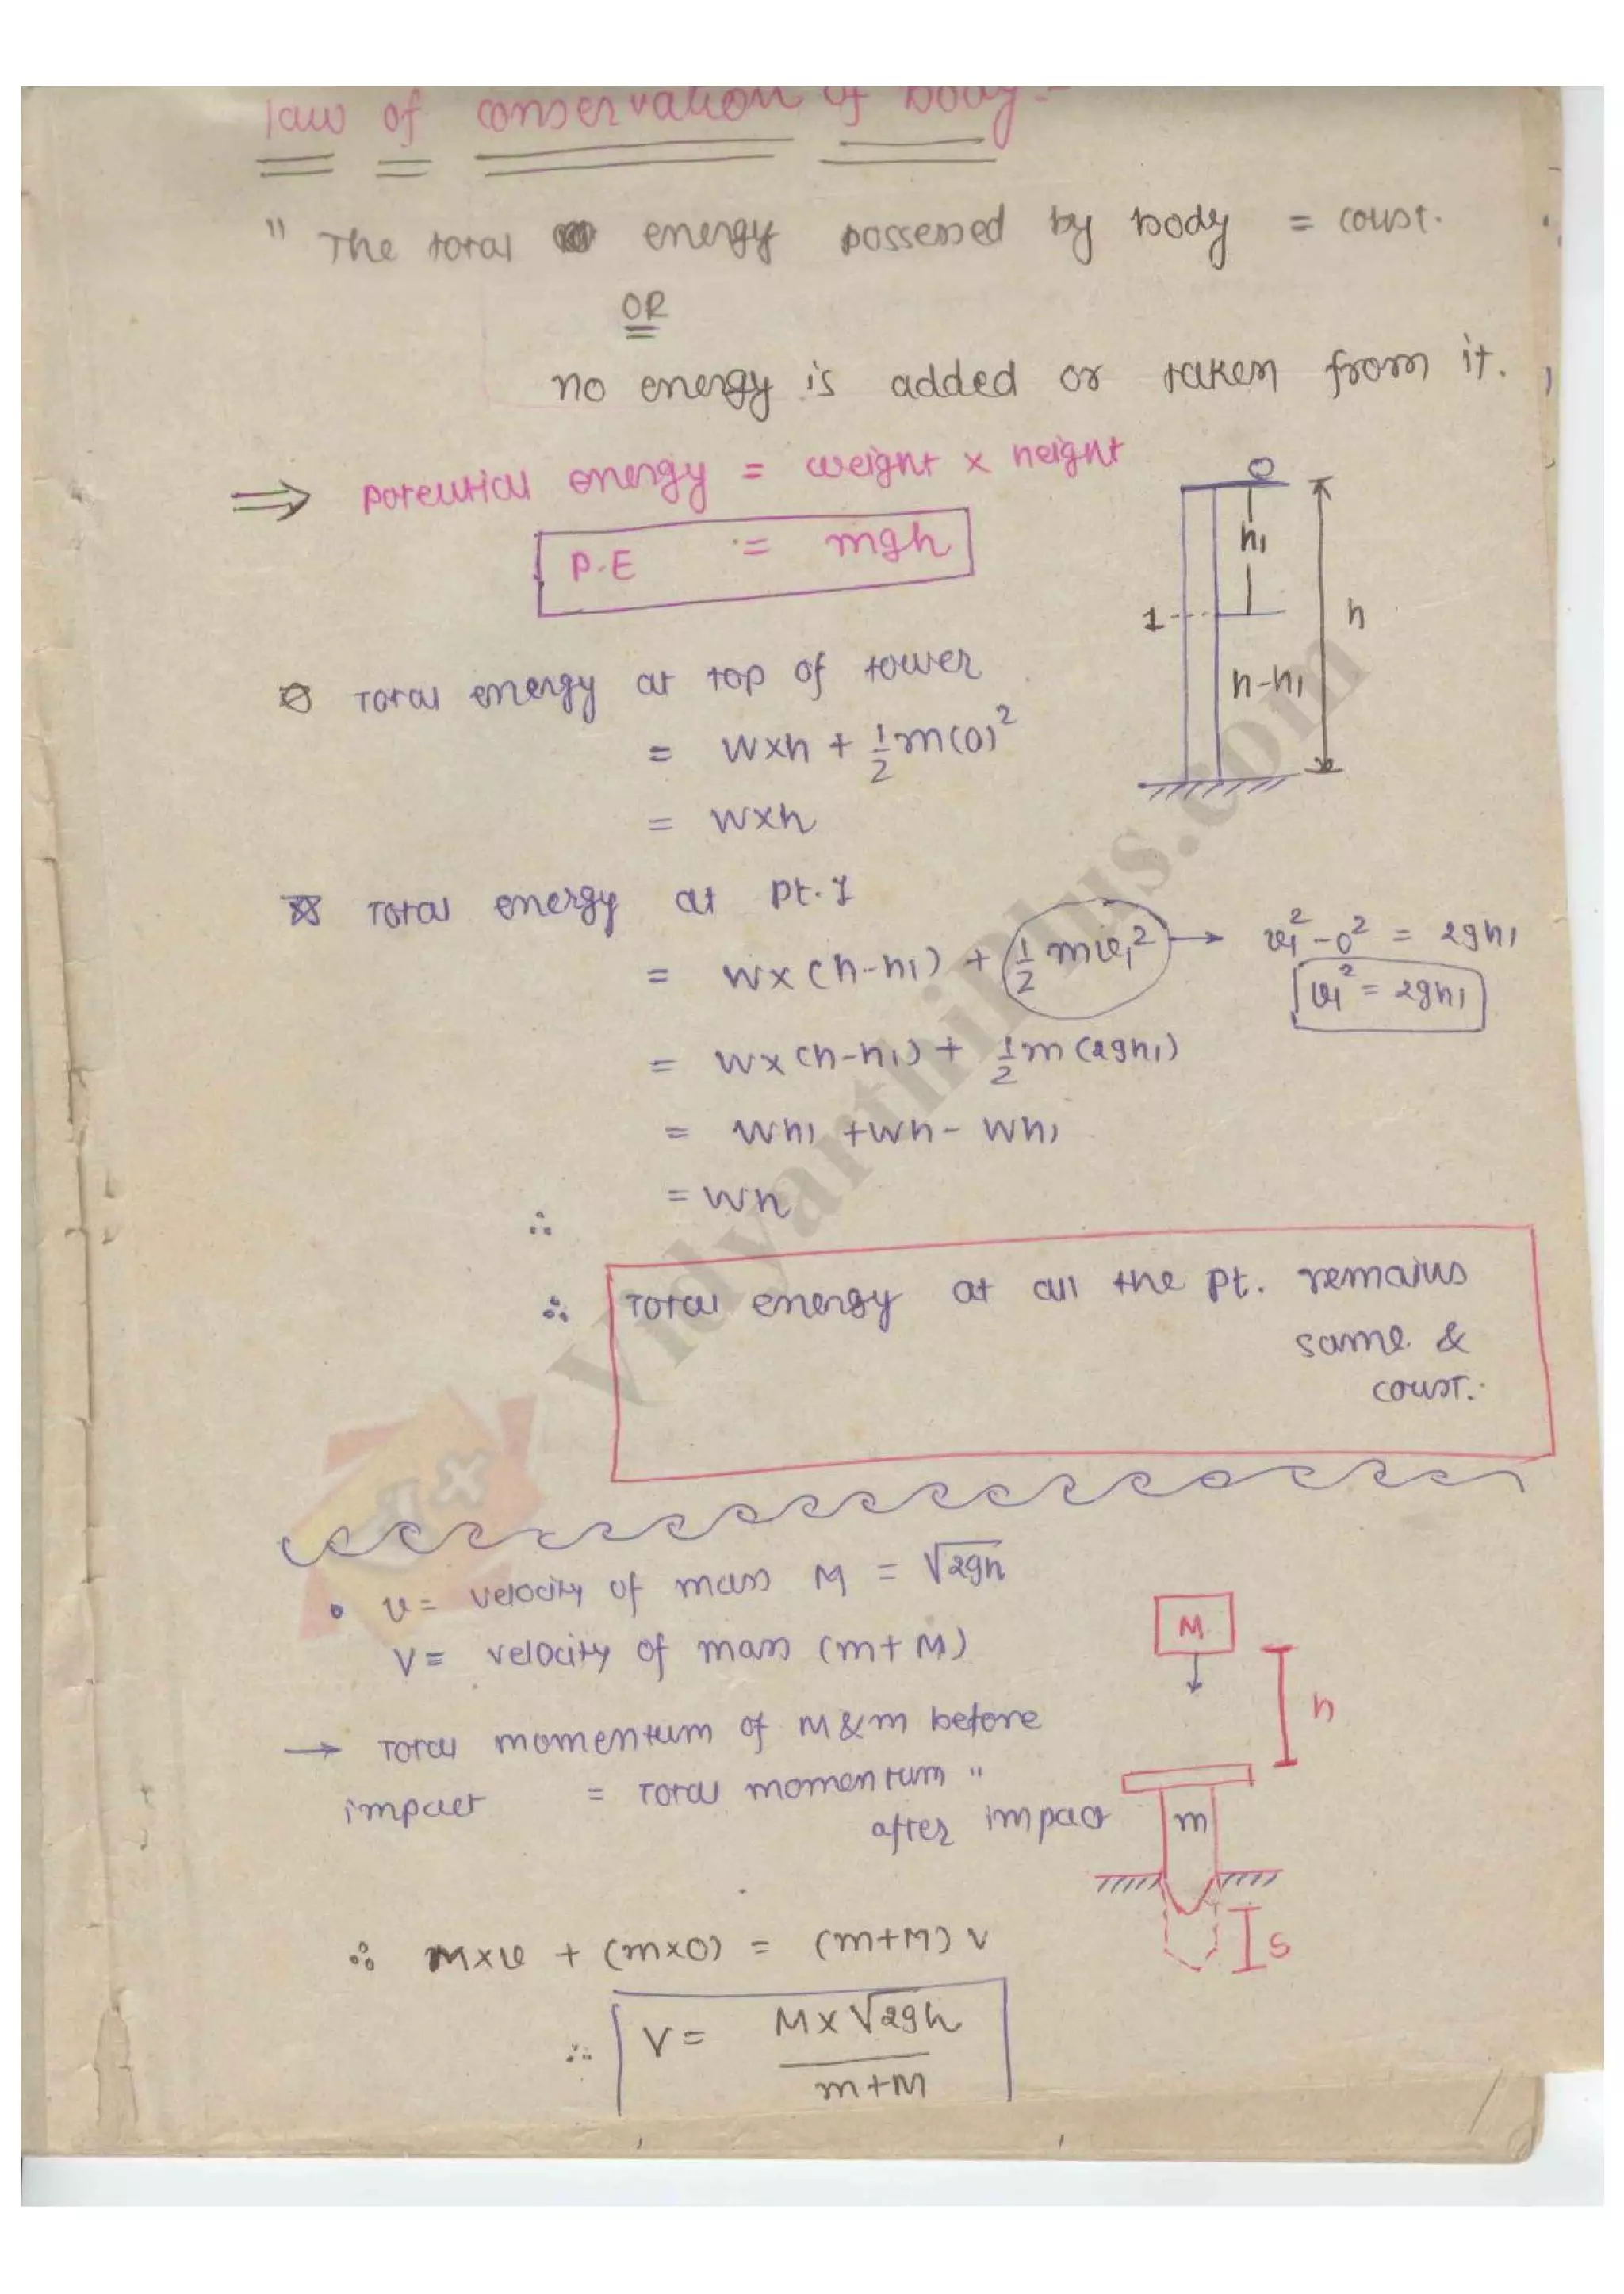 law of conservation of body:-
" The total energy possessed by body = const.
OR
no energy is added or taken from it.
⇒ potential energy = weight × height
P.E = mgh
O
h1
1
h
h-h1
Total energy at top of tower
= W×h + 1/2 m(0)²
= W×h
Total energy at pt. 1
= W×(h-h1) + 1/2 mv1² → v1² - 0² = 2gh1
v1² = 2gh1
= W×(h-h1) + 1/2 m(2gh1)
= Wh1 + Wh - Wh1
= Wh
∴
∴ Total energy at all the pt. remains
same &
const.
• v = velocity of mass M = √2gh
V = velocity of mass (m+M)
→ Total momentum of M & m before
impact = Total momentum "
after impact
M
h
m
S
∴ M×v + (m×0) = (m+M) V
∴ V = M×√2gh / m+M
Vidyarthiplus.com